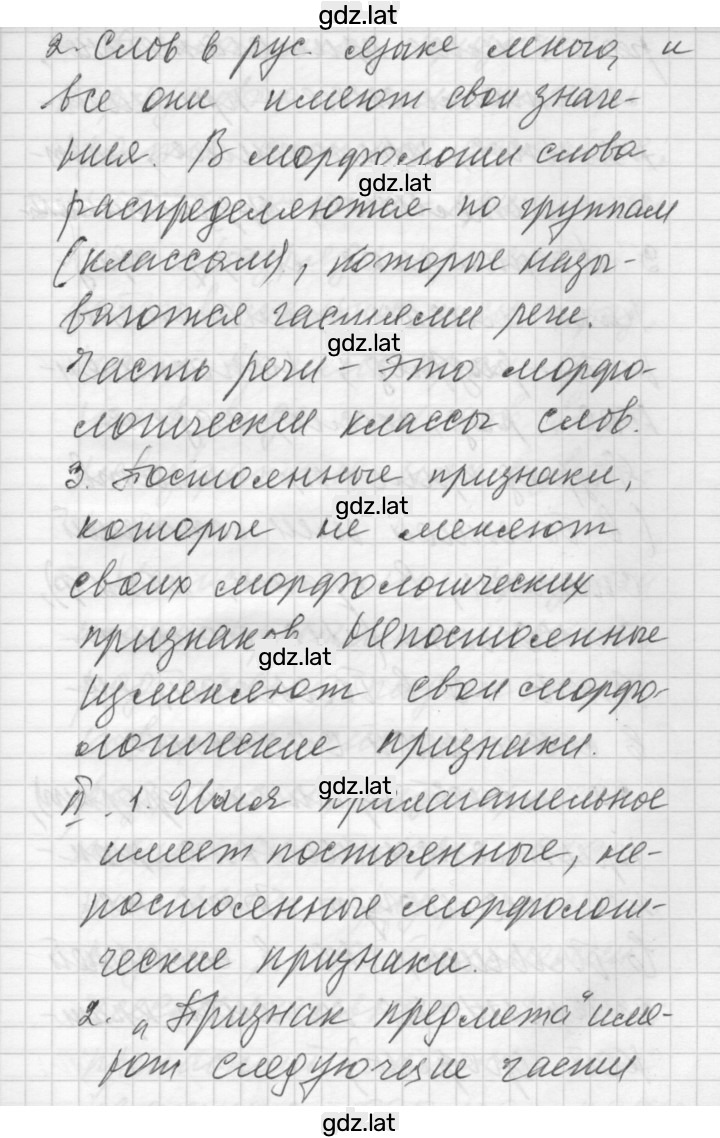 gdz.lat
2. Слов в рус. языке много, и
все они имеют свои значе-
ния. В морфологии слова
gdz.lat
распределяются по группам
(классам), которые назы-
ваются частями речи.
gdz.lat
Часть речи – это морфо-
логический классы слов.
3. Постоянные признаки,
gdz.lat
которые не меняют
своих морфологических
признаков. Непостоянные
gdz.lat
изменяют свои морфо-
логические признаки.
gdz.lat
II. 1. Имя прилагательное
имеет постоянные, не-
постоянные морфологи-
ческие признаки.
2. „Признак предмета" име-
ют следующие части
gdz.lat